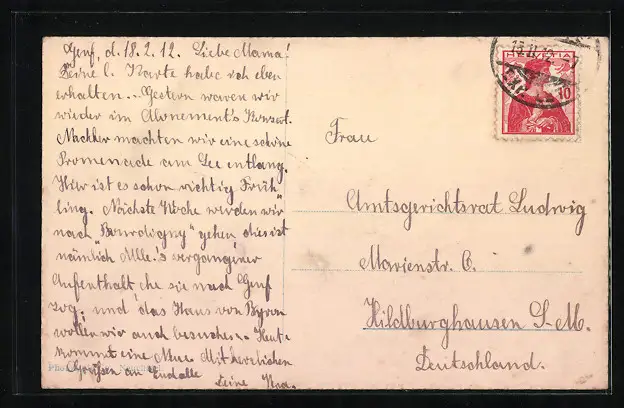 Genf, d. 18.2.12. Liebe Mama!
Deine l. Karte habe ich eben
erhalten... Gestern waren wir
wieder im Abonement's Konzert.
Nachher machten wir eine schöne
Promenade am See entlang.
Hier ist es schon richtig Früh-
ling. Nächste Woche werden wir
nach "Bourdigny" gehen dies ist
nämlich Mlle.'s vergangener
Aufenthalt ehe sie nach Genf
zog, und das Haus von Byron
wollen wir auch besuchen. Heute
kommt eine Mit herzlichen
Grüßen an Euch alle
Deine
HELVETIA
10
Frau
Amtsgerichtsrat Ludwig
Marienstr. 6.
Hildburghausen S.-M.
Deutschland.